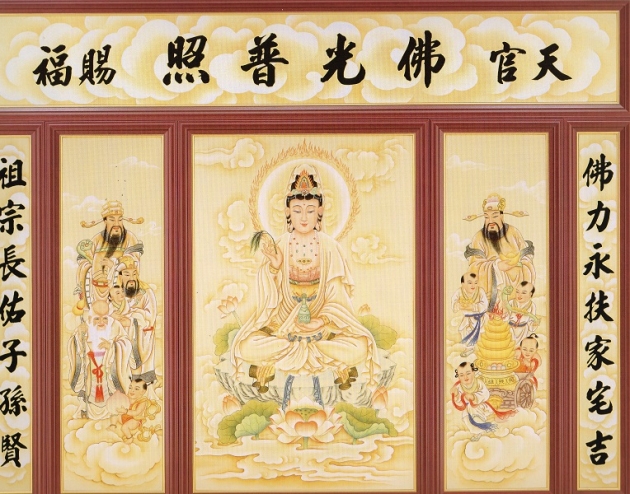 天官 佛光普照 賜福
佛力永扶家宅吉
祖宗長佑子孫賢